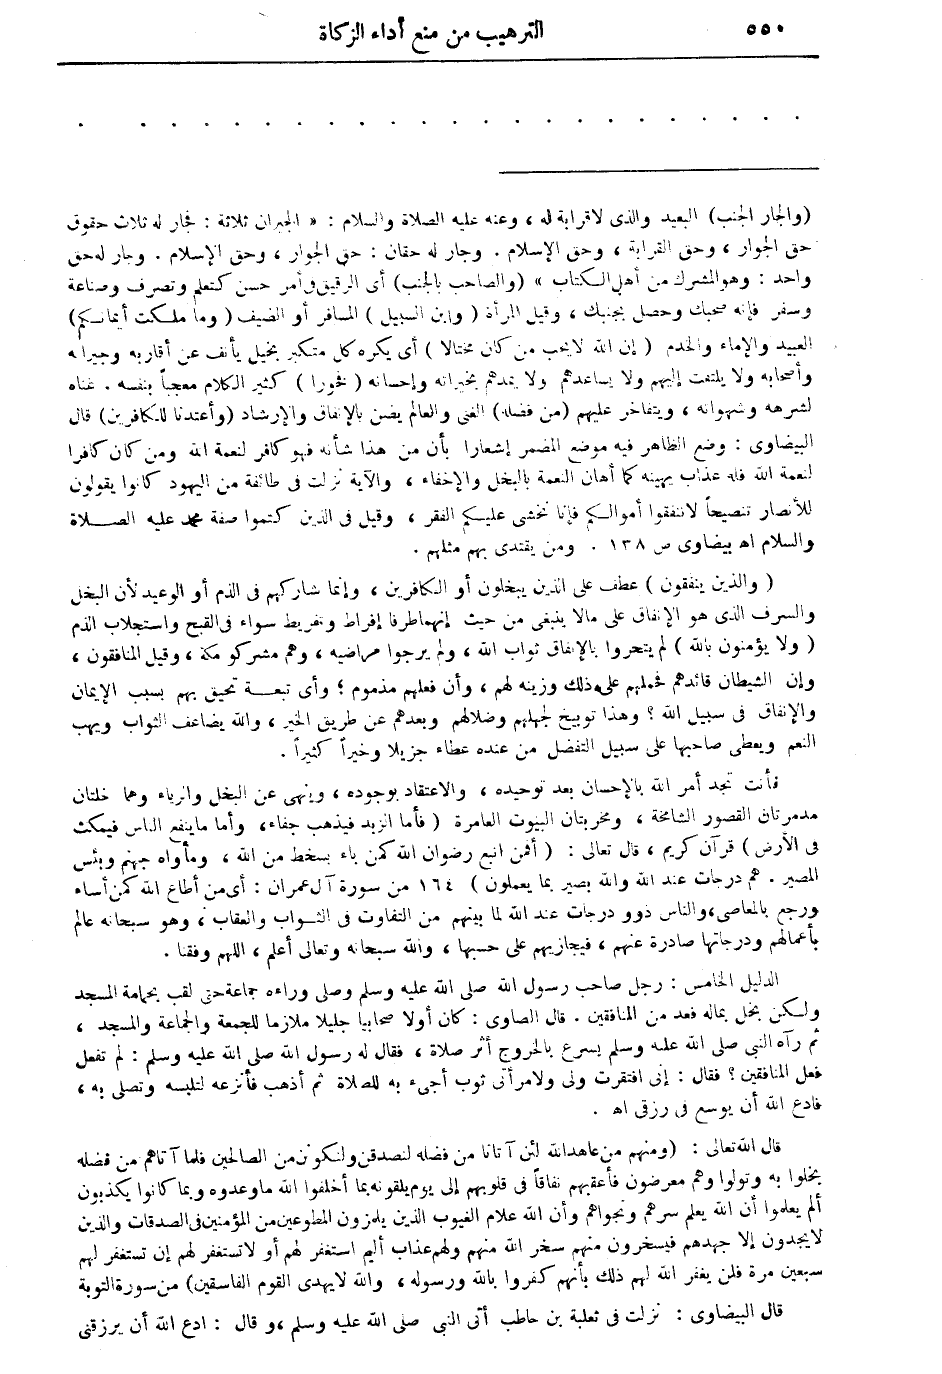 ٥٥٠
الترهيب من منع أداء الزكاة
(والجار الجنب) البعيد والذى لاقرابة له ، وعنه عليه الصلاة والسلام : « الجيران ثلاثة : فجار له ثلاث حقوق
حق الجوار ، وحق القرابة ، وحق الإسلام . وجار له حقان : حق الجوار ، وحق الإسلام . وجار له حق
واحد : وهو المشرك من أهل الكتاب » (والصاحب بالجنب) أى الرفيق فى أمر حسن كتعلم وتصرف وصناعة
وسفر فإنه صحبك وحصل بجنبك ، وقيل المرأة ( وابن السبيل ) المسافر أو الضيف ( وما ملكت أيمانكم)
العبيد والإماء والخدم ( إن الله لايحب من كان مختالا ) أى يكره كل متكبر بخيل يأنف عن أقاربه وجيرانه
وأصحابه ولا يلتفت إليهم ولا يساعدهم ولا يمدهم بخيراته وإحسانه ( فخورا ) كثير الكلام معجباً بنفسه . غناه
لشرهه وشهواته ، ويتفاخر عليهم (من فضله) الغنى والعالم يضن بالإنفاق والإرشاد (وأعتدنا للكافرين) قال
البيضاوى : وضع الظاهر فيه موضع المضمر إشعارا بأن من هذا شأنه فهو كافر لنعمة الله ومن كان كافرا
لنعمة الله فله عذاب يهينه كما أهان النعمة بالبخل والإخفاء ، والآية نزلت فى طائفة من اليهود كانوا يقولون
للأنصار تنصيحاً لاتنفقوا أموالكم فإنا نخشى عليكم الفقر ، وقيل فى الذين كتموا صفة محمد عليه الصلاة
والسلام اه بيضاوى ص ١٣٨ . ومن يقتدى بهم مثلهم .
( والذين ينفقون ) عطف على الذين يبخلون أو الكافرين ، وإنما شاركهم فى الذم أو الوعيد لأن البخل
والسرف الذى هو الإنفاق على مالا ينبغى من حيث إنهما طرفا إفراط وتفريط سواء فى القبح واستجلاب الذم
( ولا يؤمنون بالله ) لم يتحروا بالإنفاق ثواب الله ، ولم يرجوا مراضيه ، وهم مشركو مكة ، وقيل المنافقون ،
وإن الشيطان قائدهم فحملهم على ذلك وزينه لهم ، وأن فعلهم مذموم ؛ وأى تبعة تحيق بهم بسبب الإيمان
والإنفاق فى سبيل الله ؟ وهذا توبيخ لجهلهم وضلالهم وبعدهم عن طريق الخير ، والله يضاعف الثواب ويهب
النعم ويعطى صاحبها على سبيل التفضل من عنده عطاء جزيلا وخيراً كثيراً .
فأنت تجد أمر الله بالإحسان بعد توحيده ، والاعتقاد بوجوده ، وينهى عن البخل والرياء وهما خلتان
مدمرتان القصور الشامخة ، ومخربتان البيوت العامرة ( فأما الزبد فيذهب جفاء، وأما ماينفع الناس فيمكث
فى الأرض ) قرآن كريم ، قال تعالى : ( أفمن اتبع رضوان الله كمن باء بسخط من الله ، ومأواه جهنم وبئس
المصير . هم درجات عند الله والله بصير بما يعملون ) ١٦٤ من سورة آل عمران : أى من أطاع الله كمن أساء
ورجع بالمعاصى، والناس ذوو درجات عند الله لما بينهم من التفاوت فى الثواب والعقاب ، وهو سبحانه عالم
بأعمالهم ودرجاتها صادرة عنهم ، فيجازيهم على حسبها ، والله سبحانه وتعالى أعلم ، اللهم وفقنا .
الدليل الخامس : رجل صاحب رسول الله صلى الله عليه وسلم وصلى وراءه جماعة حتى لقب بحمامة المسجد
ولكن بخل بماله فعد من المنافقين . قال الصاوى : كان أولا صحابيا جليلا ملازما للجمعة والجماعة والمسجد ،
ثم رآه النبى صلى الله عليه وسلم يسرع بالخروج أثر صلاة ، فقال له رسول الله صلى الله عليه وسلم : لم تفعل
فعل المنافقين ؟ فقال : إنى افتقرت ولى ولامرأتى ثوب أجىء به للصلاة ثم أذهب فأنزعه لتلبسه وتصلى به ،
فادع الله أن يوسع فى رزقى اه .
قال الله تعالى : (ومنهم من عاهد الله لئن آتانا من فضله لنصدقن ولنكونن من الصالحين فلما آتاهم من فضله
بخلوا به وتولوا وهم معرضون فأعقبهم نفاقاً فى قلوبهم إلى يوم يلقونه بما أخلفوا الله ماوعدوه وبما كانوا يكذبون
ألم يعلموا أن الله يعلم سرهم ونجواهم وأن الله علام الغيوب الذين يلمزون المطوعين من المؤمنين فى الصدقات والذين
لايجدون إلا جهدهم فيسخرون منهم سخر الله منهم ولهم عذاب أليم استغفر لهم أو لاتستغفر لهم إن تستغفر لهم
سبعين مرة فلن يغفر الله لهم ذلك بأنهم كفروا بالله ورسوله ، والله لايهدى القوم الفاسقين) من سورة التوبة
قال البيضاوى : نزلت فى ثعلبة بن حاطب أتى النبى صلى الله عليه وسلم ،و قال : ادع الله أن يرزقنى